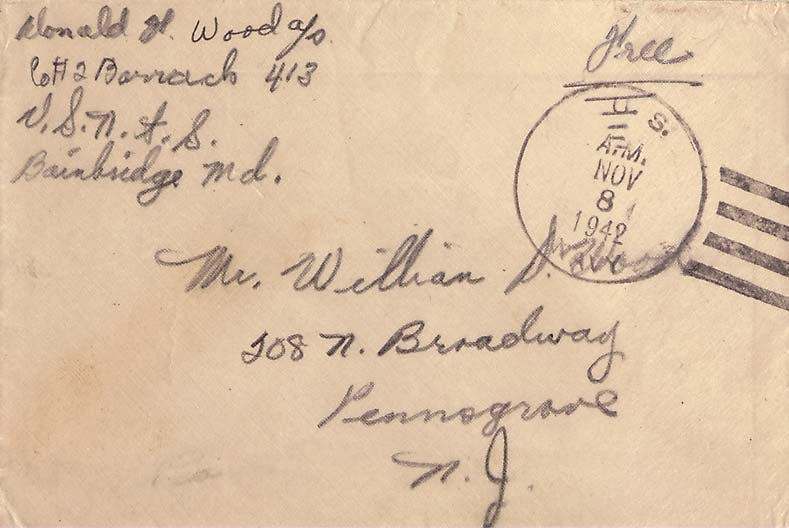 Donald H. Wood a/s
Co # 2 Barrack 413
U.S.N.T.S.
Bainbridge Md.
Free
U. S.
A.M.
NOV
8
1942
Mr. William D. Wood
208 N. Broadway
Pennsgrove
N.J.